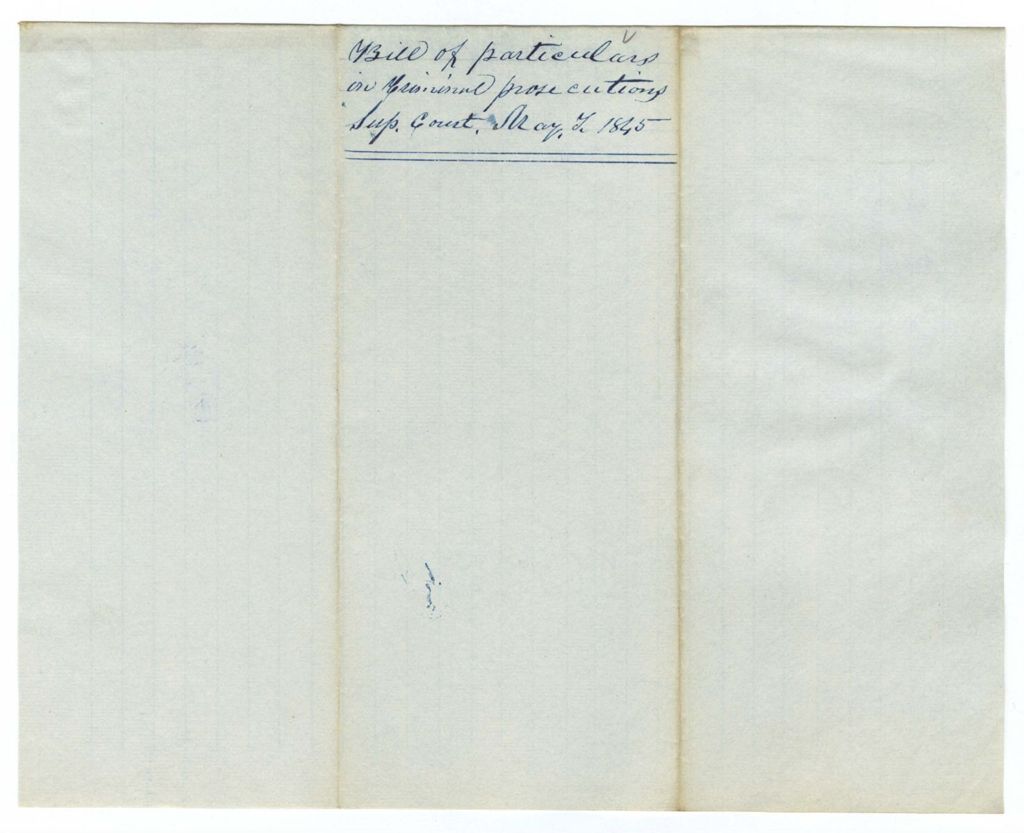 Bill of particulars
in Criminal prosecutions
Sup. Court. May. T. 1845